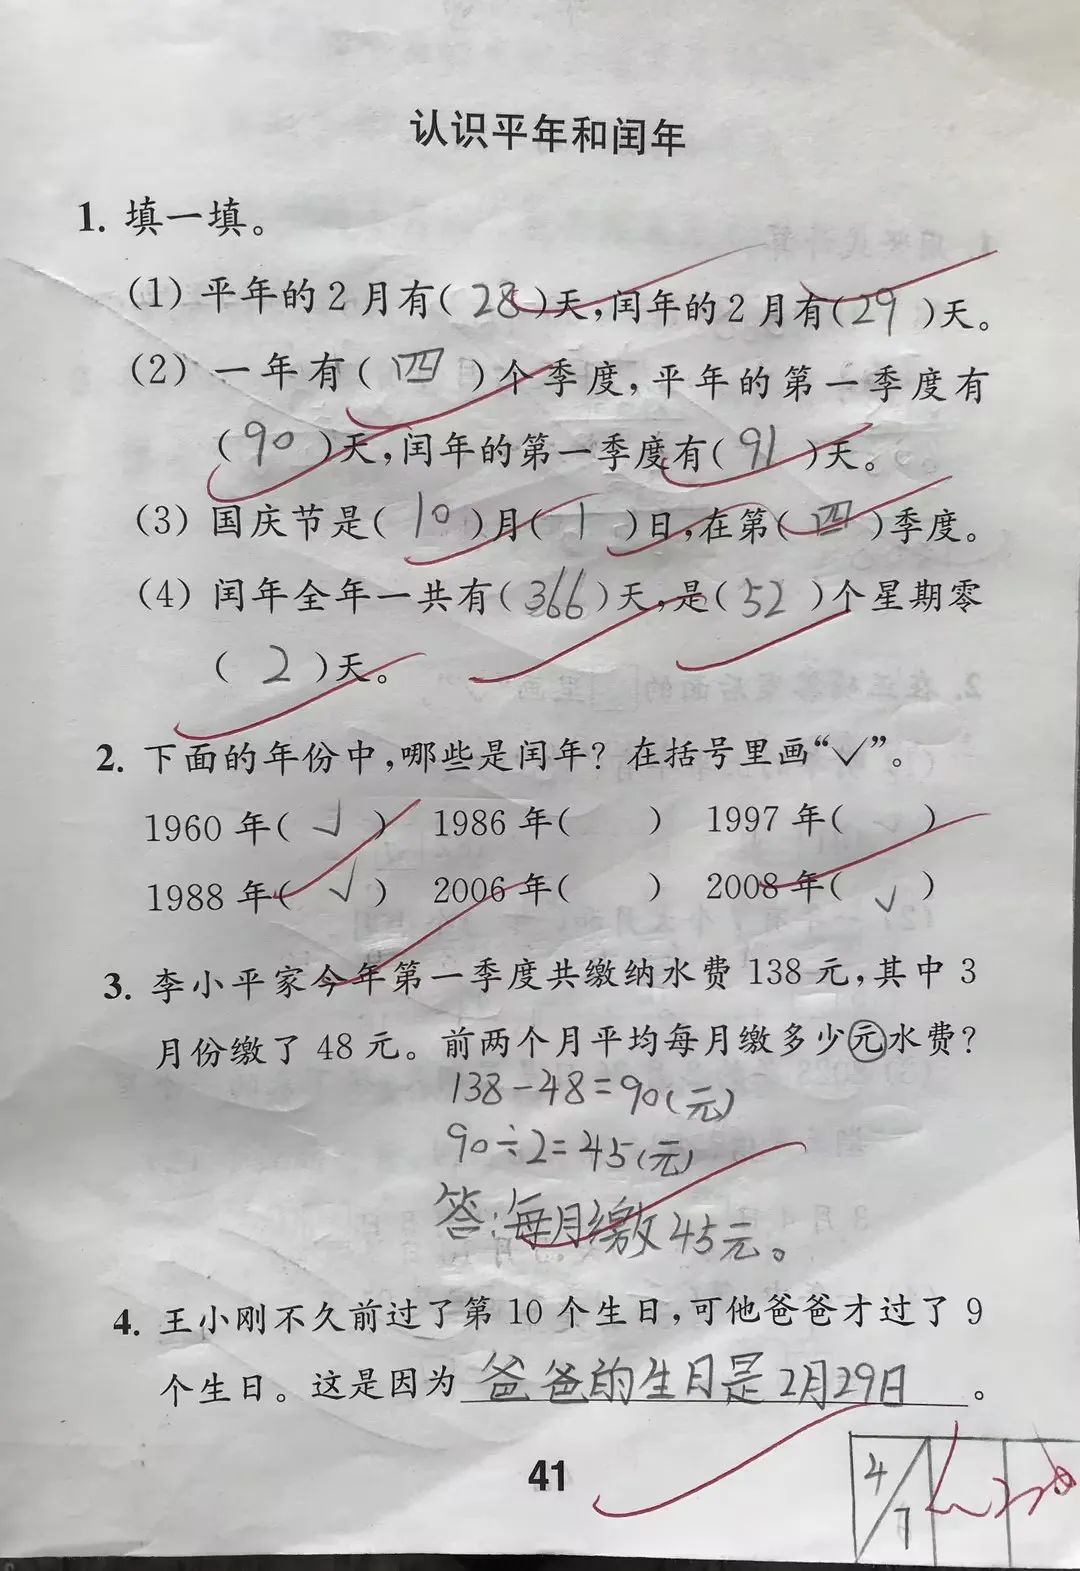 认识平年和闰年
1. 填一填。
(1) 平年的2月有( 28 )天,闰年的2月有( 29 )天。
(2) 一年有( 四 )个季度,平年的第一季度有
( 90 )天,闰年的第一季度有( 91 )天。
(3) 国庆节是( 10 )月( 1 )日,在第( 四 )季度。
(4) 闰年全年一共有( 366 )天,是( 52 )个星期零
( 2 )天。
2. 下面的年份中,哪些是闰年? 在括号里画“✓”。
1960 年( ✓ ) 1986 年( ) 1997 年( )
1988 年( ✓ ) 2006 年( ) 2008 年( ✓ )
3. 李小平家今年第一季度共缴纳水费 138 元,其中 3
月份缴了 48 元。前两个月平均每月缴多少元水费?
138-48=90(元)
90÷2=45(元)
答:每月缴45元。
4. 王小刚不久前过了第 10 个生日,可他爸爸才过了 9
个生日。这是因为 爸爸的生日是2月29日 。
41
4/7